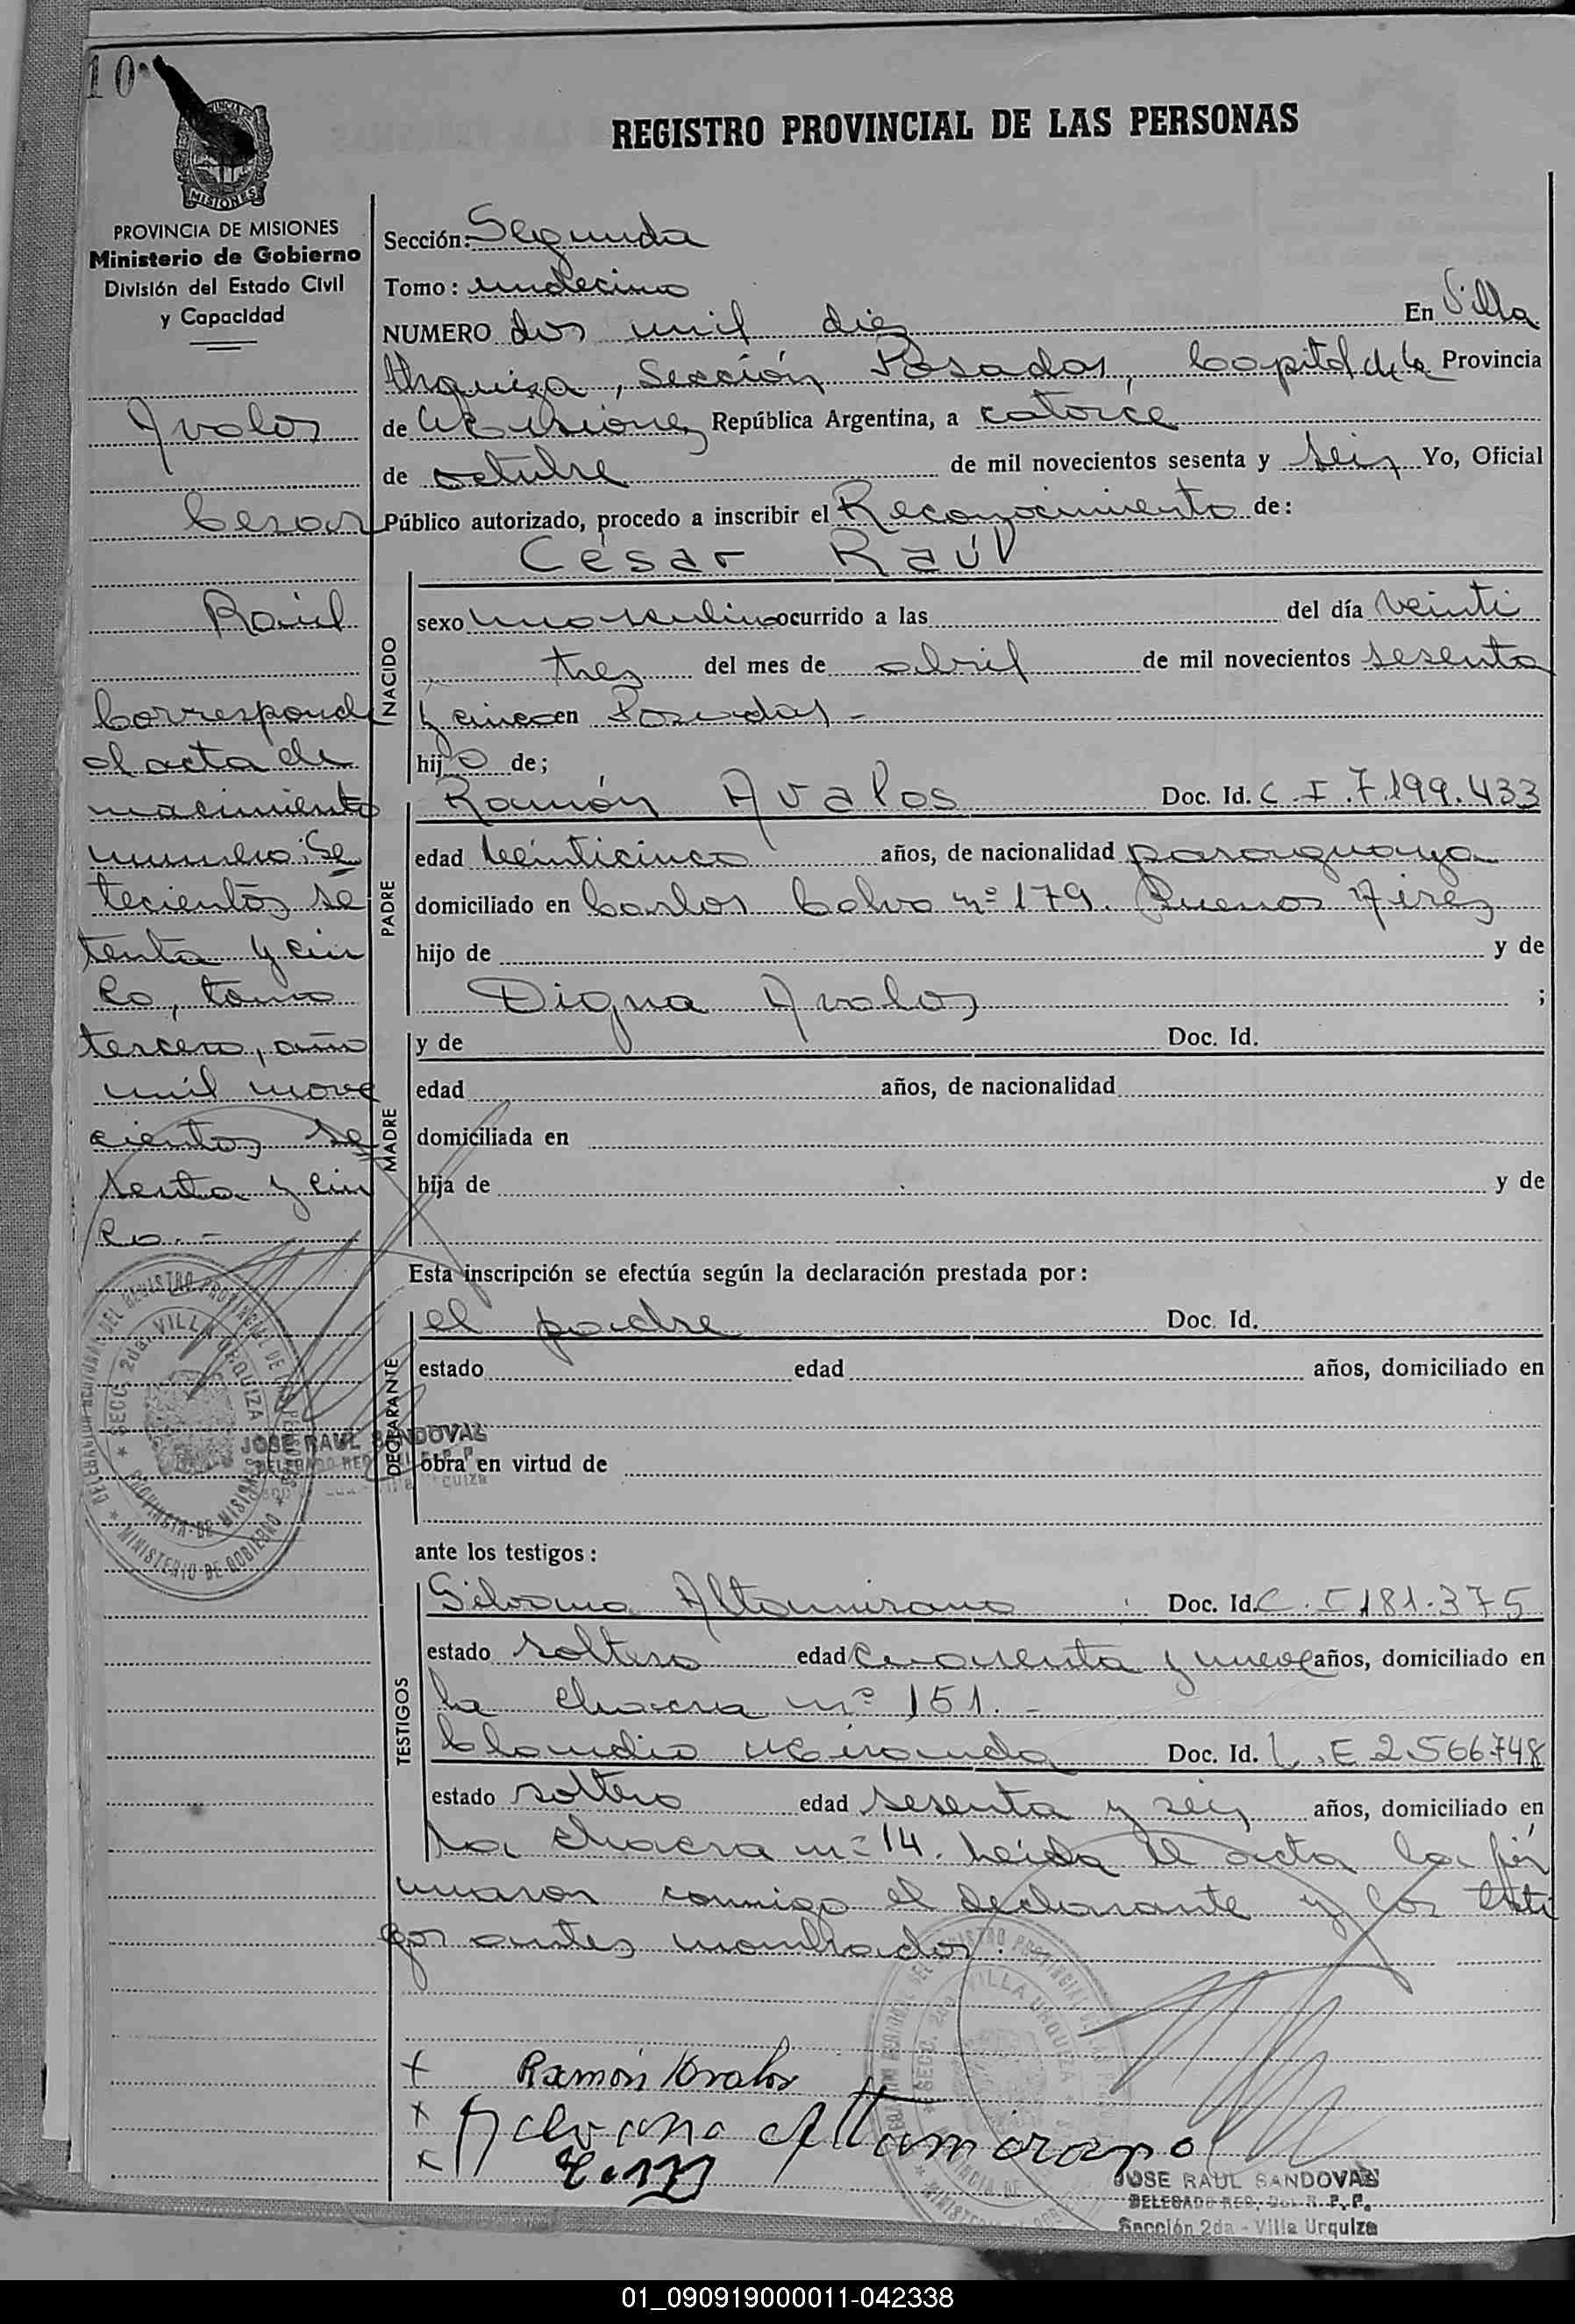 10
REGISTRO PROVINCIAL DE LAS PERSONAS
MISIONES
PROVINCIA DE MISIONES
Ministerio de Gobierno
División del Estado Civil
y Capacidad
Avalos
Cesar
Raúl
Corresponde
al acta de
nacimiento
numero: Se
tecientos se
tenta y cin
co, tomo
tercero, año
mil nove
cientos se
senta y cin
co. -
Sección: Segunda
Tomo: undecimo
NUMERO dos mil diez En Villa
Urquiza, Sección Posadas, Capital de la Provincia
de Misiones República Argentina, a catorce
de octubre de mil novecientos sesenta y seis Yo, Oficial
Público autorizado, procedo a inscribir el Reconocimiento de:
César Raúl
NACIDO
sexo masculino ocurrido a las del día veinti
tres del mes de abril de mil novecientos sesenta
y cinco en Posadas -
hijo de;
PADRE
Ramón Avalos Doc. Id. C. I. 7.199.433
edad veinticinco años, de nacionalidad paraguaya
domiciliado en Carlos Calvo nº 179. Buenos Aires
hijo de y de
Digna Avalos ;
MADRE
y de Doc. Id.
edad años, de nacionalidad
domiciliada en
hija de y de
Esta inscripción se efectúa según la declaración prestada por:
DECLARANTE
el padre Doc. Id.
estado edad años, domiciliado en
obra en virtud de
ante los testigos:
TESTIGOS
Silvana Altamirano Doc. Id. C. I 181.375
estado soltera edad cuarenta y nueve años, domiciliado en
la chacra nº 151. -
Claudio Miranda Doc. Id. L. E 2.566.748
estado soltero edad sesenta y seis años, domiciliado en
la chacra nº 14. Leída el acta la fir
maron conmigo el declarante y los testi
gos antes nombrados. -
DELEGACION REGIONAL DEL REGISTRO PROVINCIAL DE LAS PERSONAS
SECC. 2da. VILLA URQUIZA
PROVINCIA DE MISIONES
MINISTERIO DE GOBIERNO
JOSE RAUL SANDOVAL
x Ramón Avalos
x Silvana Altamirano
x
JOSE RAUL SANDOVAL
DELEGADO REG. DEL R. P. P.
Sección 2da - Villa Urquiza
01_090919000011-042338